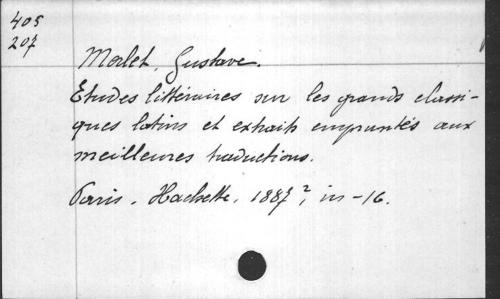 405
207
Merlet, Gustave.
Etudes littéraires sur les grands classi-
ques latins et extraits empruntés aux
meilleures traductions.
Paris, Hachette, 1887², in-16.